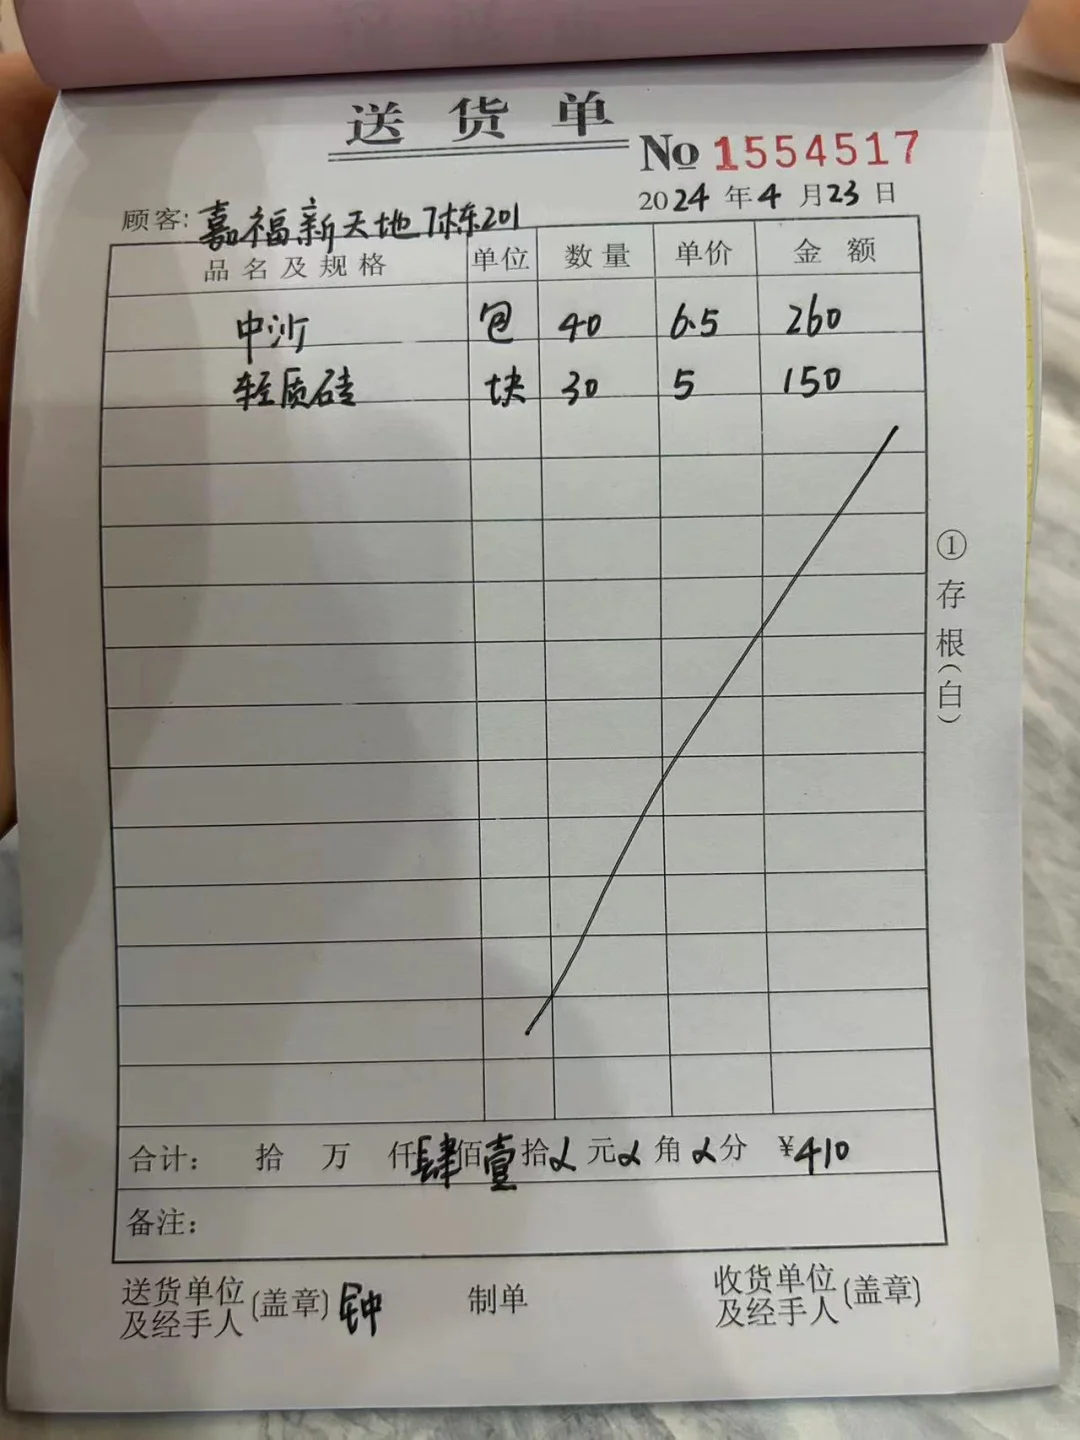 送货单
No 1554517
2024年4月23日
顾客: 嘉福新天地7栋201
品名及规格 单位 数量 单价 金额
中沙 包 40 6.5 260
轻质砖 块 30 5 150
①存根(白)
合计: 拾 万 仟肆佰壹拾 元 角 分 ¥410
备注:
送货单位及经手人(盖章) 钟 制单 收货单位及经手人(盖章)